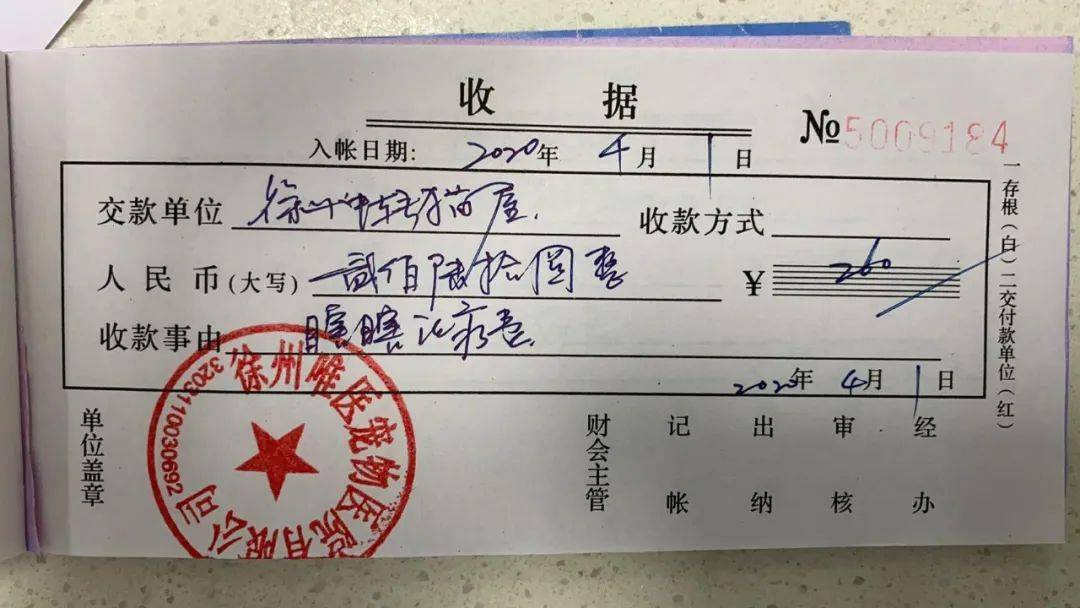 收 据
№5009184
入帐日期: 2020年 4月 1日
交款单位 徐州中转猫屋 收款方式
人民币(大写) 贰佰陆拾圆整 ¥ 260
收款事由 瞎瞎治疗费
2020年 4月 1日
一存根(白)二交付款单位(红)
单位盖章
财会主管 记帐 出纳 审核 经办
徐州雄医宠物医院有限公司
3203110030692